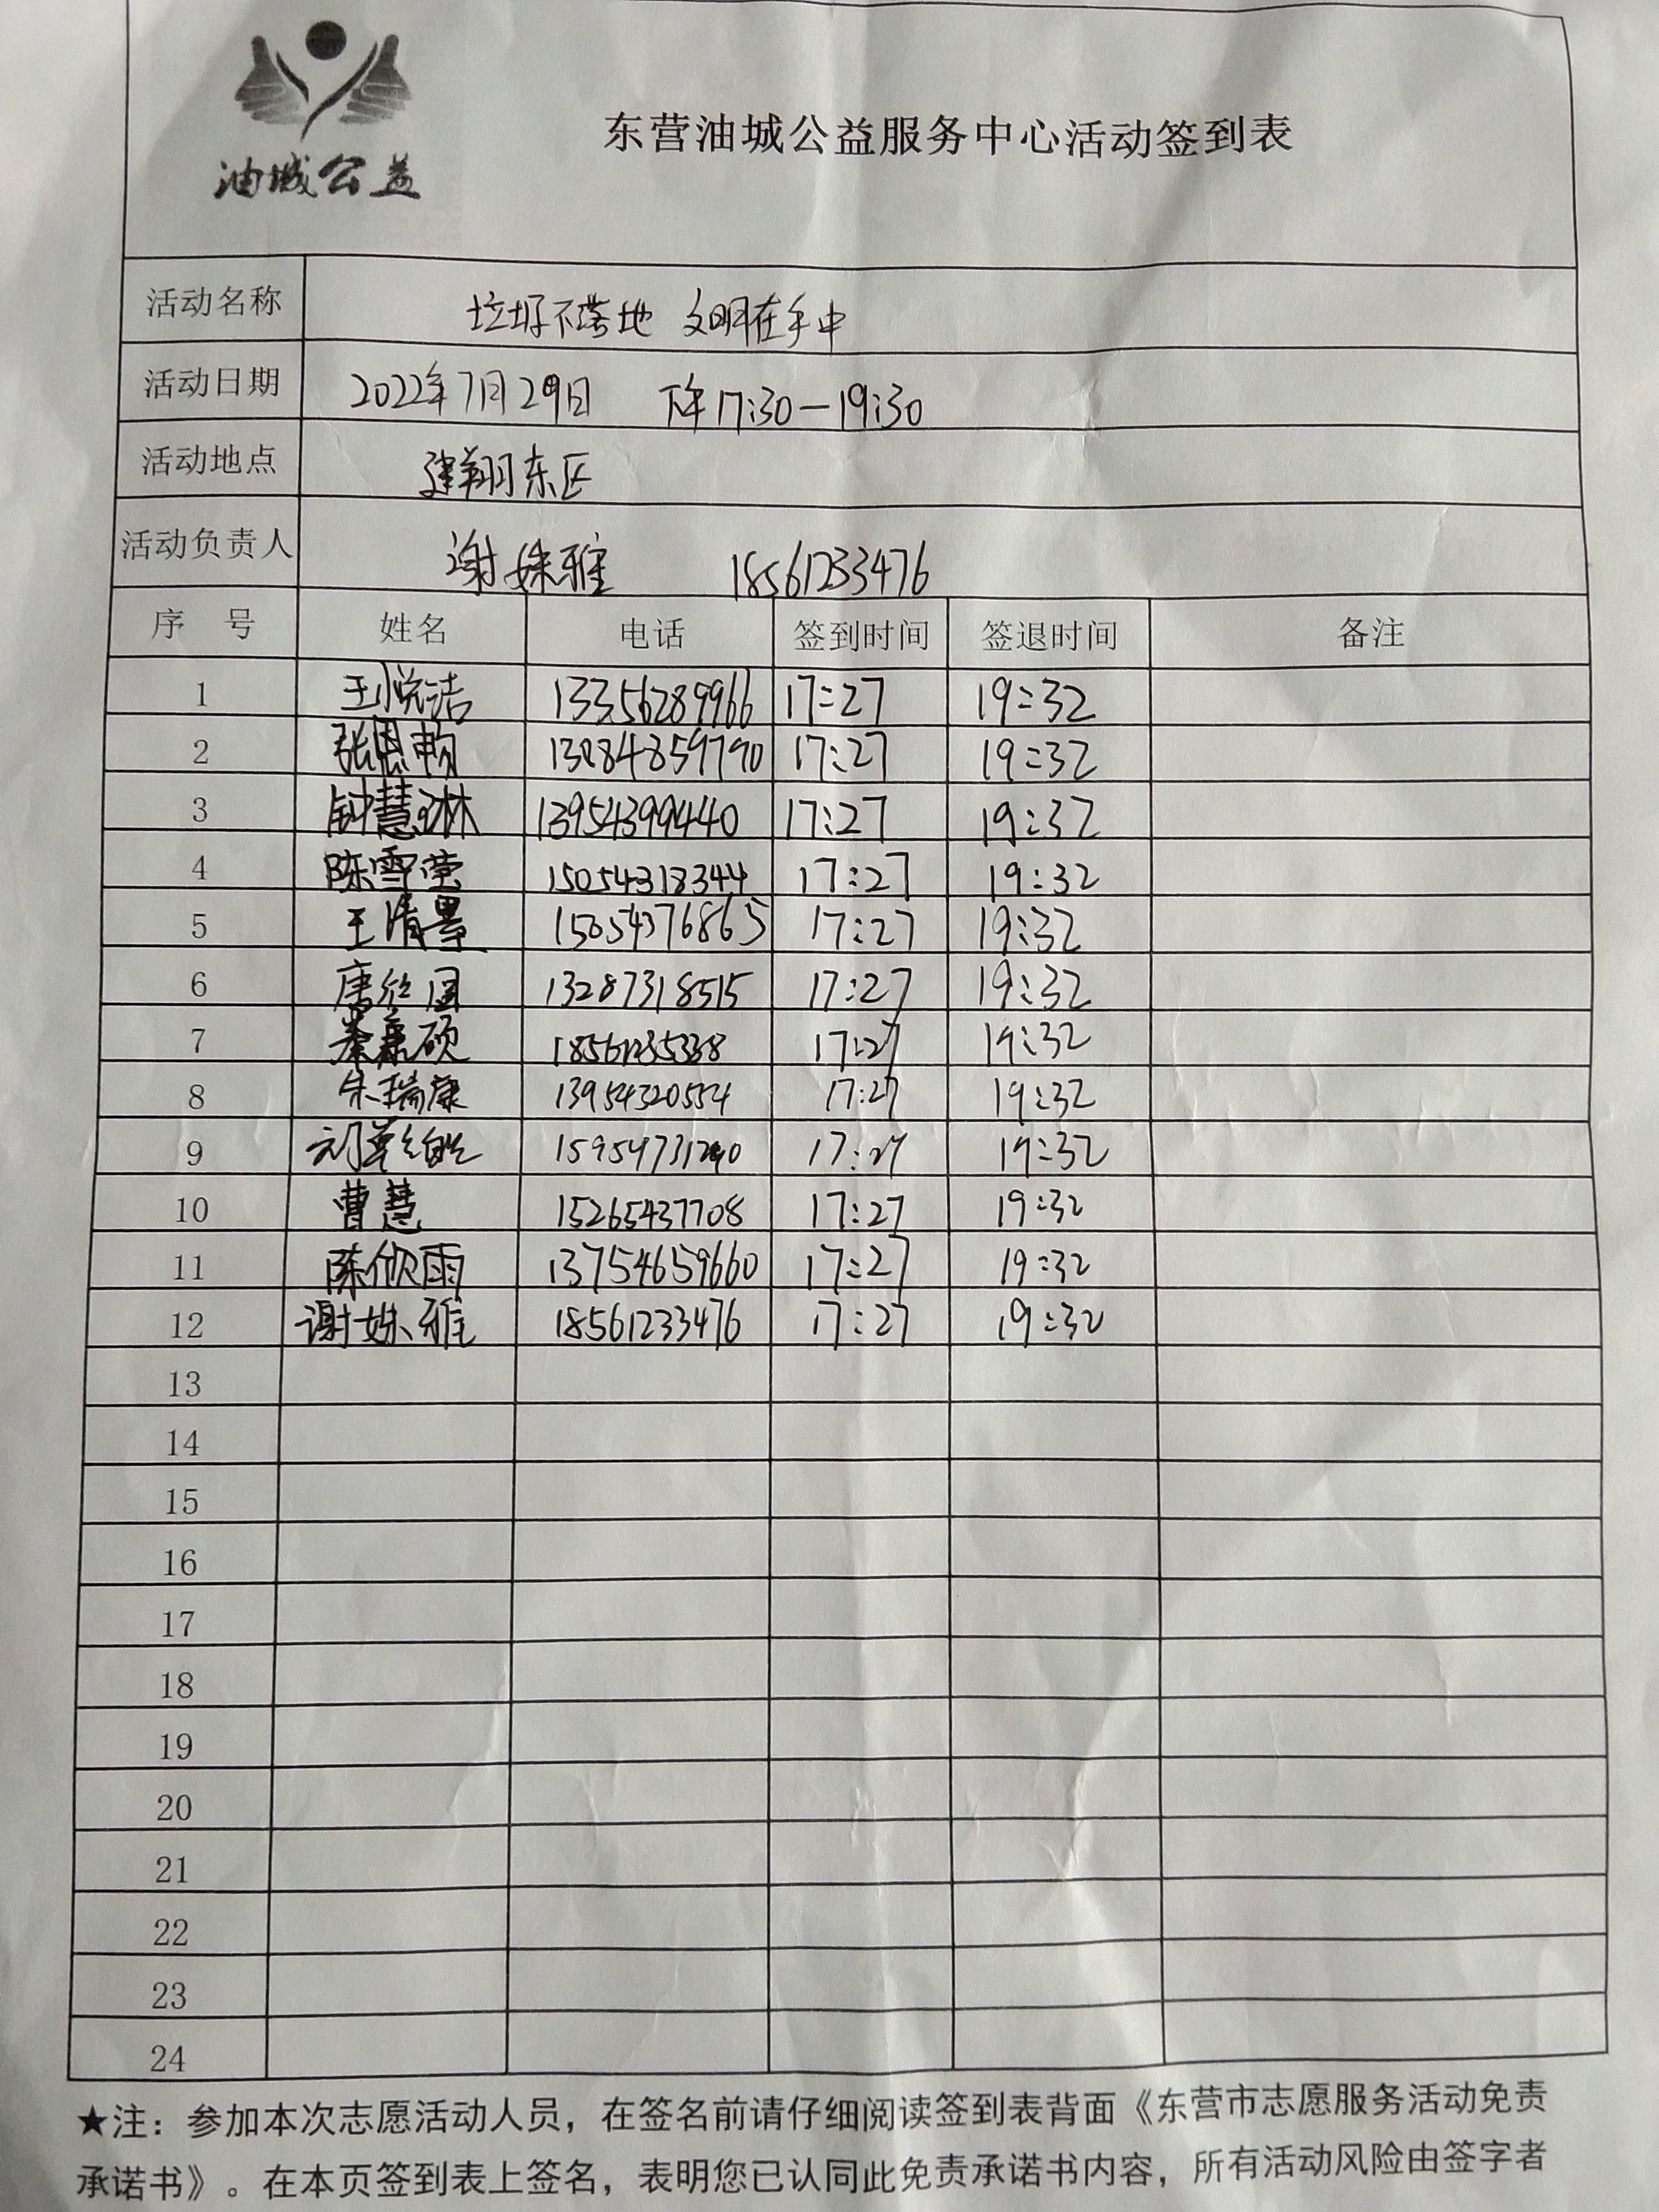 油城公益
东营油城公益服务中心活动签到表
活动名称 垃圾不落地 文明在手中
活动日期 2022年7月29日 下午17:30—19:30
活动地点 建翔东区
活动负责人 谢姝雅 18561233476
序 号 姓名 电话 签到时间 签退时间 备注
1 王悦洁 13356289966 17:27 19:32
2 张恩畅 13084859790 17:27 19:32
3 钟慧琳 13954399440 17:27 19:32
4 陈雪莹 15054318344 17:27 19:32
5 王清墨 15054376865 17:27 19:32
6 13287318515 17:27 19:32
7 18561235338 17:27 19:32
8 朱瑞康 13954320554 17:27 19:32
9 17:27 19:32
10 曹慧 15265437708 17:27 19:32
11 陈欣雨 13754659660 17:27 19:32
12 谢姝雅 18561233476 17:27 19:32
13
14
15
16
17
18
19
20
21
22
23
24
★注：参加本次志愿活动人员，在签名前请仔细阅读签到表背面《东营市志愿服务活动免责
承诺书》。在本页签到表上签名，表明您已认同此免责承诺书内容，所有活动风险由签字者